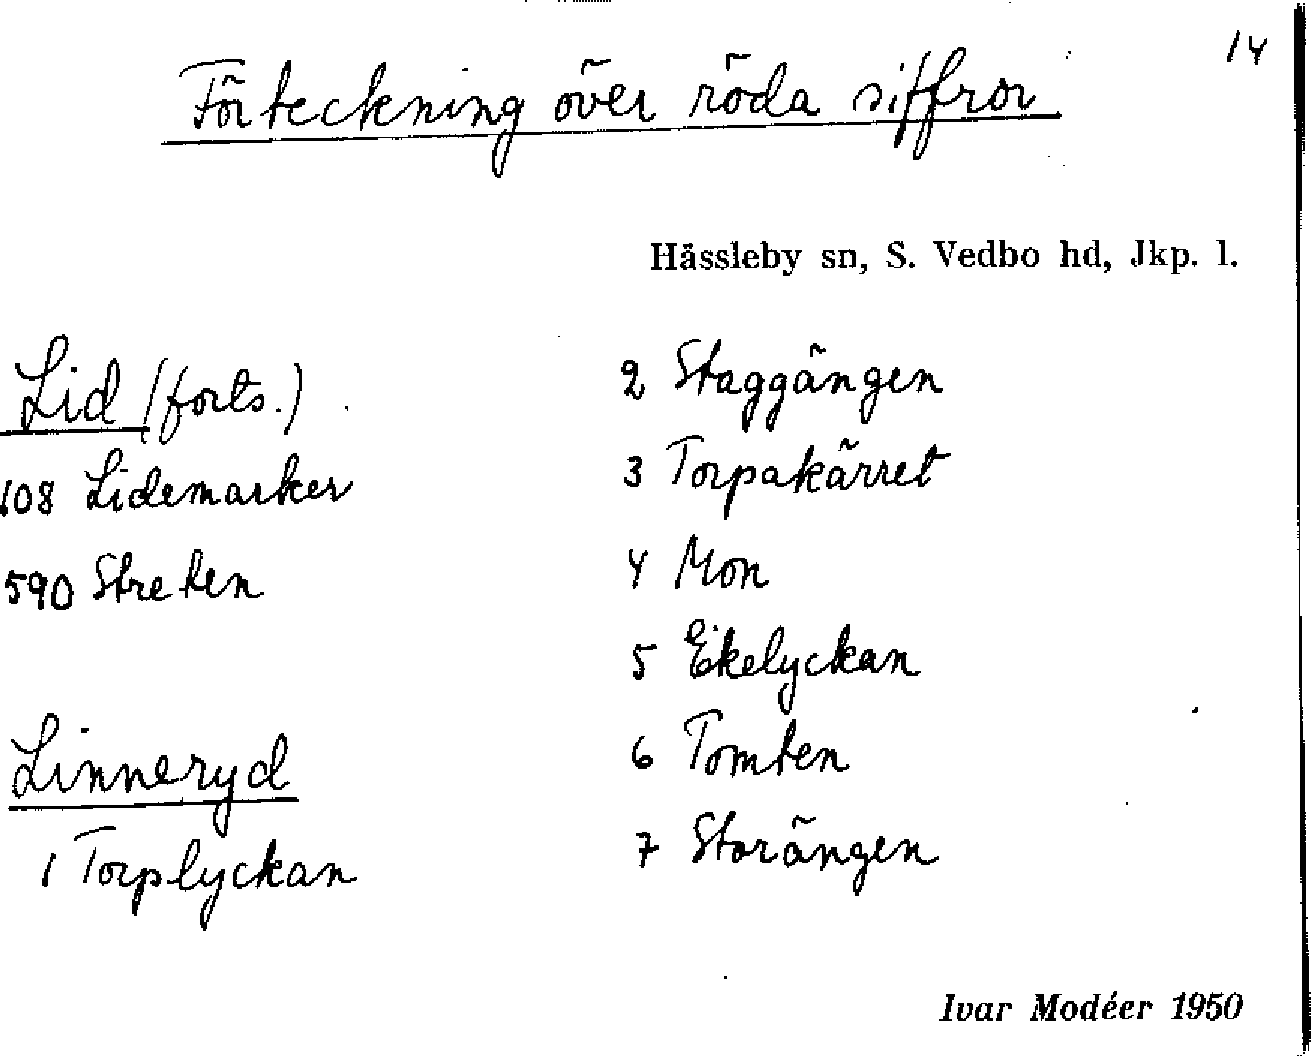 14
Förteckning över röda siffror
Hässleby sn, S. Vedbo hd, Jkp. l.
Lid (forts.)
608 Lidemarker
590 Streten
Linneryd
1 Torplyckan
2 Staggängen
3 Torpakärret
4 Mon
5 Ekelyckan
6 Tomten
7 Storängen
Ivar Modéer 1950